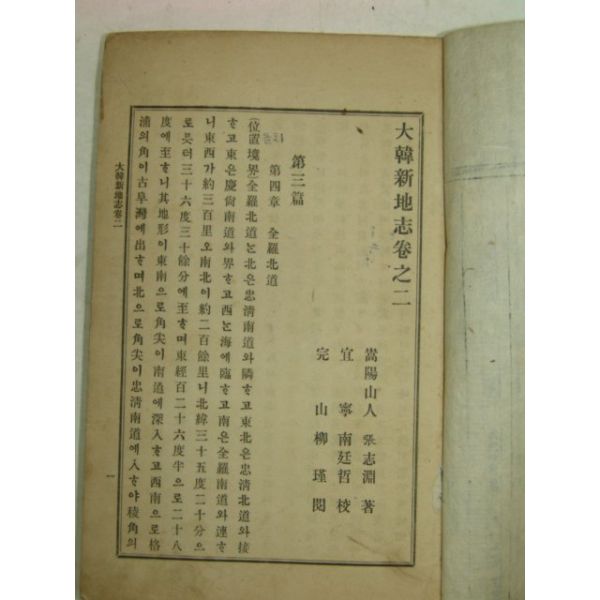 大韓新地志卷之二
嵩陽山人 張志淵 著
宜寧 南廷哲 校
完山 柳瑾 閱
第三篇
第四章 全羅北道
(位置境界)全羅北道ᄂᆞᆫ北은忠淸南道와隣ᄒᆞ고東北은忠淸北道와接
ᄒᆞ고東은慶尙南道와界ᄒᆞ고西ᄂᆞᆫ海에臨ᄒᆞ고南은全羅南道와連ᄒᆞ
니東西가約三百里오南北이約二百餘里니北緯三十五度二十分으
로븟터三十六度三十餘分에至ᄒᆞ며東經百二十六度半으로二十八
度에至ᄒᆞ니其地形이東南으로角尖이南道에深入ᄒᆞ고西南으로格
浦의角이古阜灣에出ᄒᆞ며北으로角尖이忠淸南道에入ᄒᆞ야稜角의
大韓新地志卷二
一